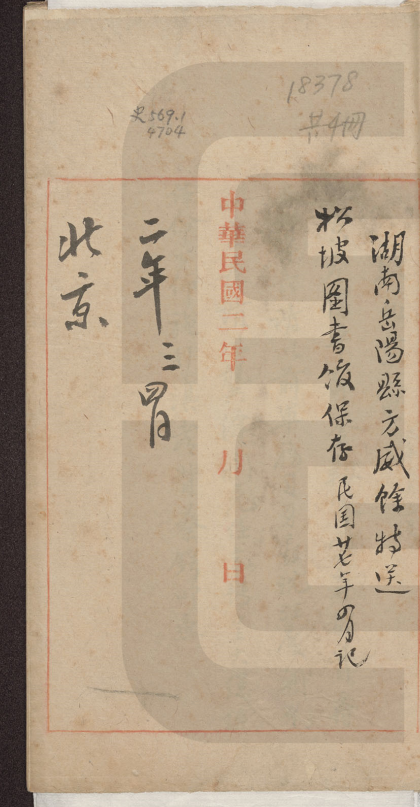 18378
共4冊
史569.1
4704
湖南岳陽縣方威餘特送
松坡圖書館保存民国廿七年四月記
中華民國二年 月 日
二年三四月
北京